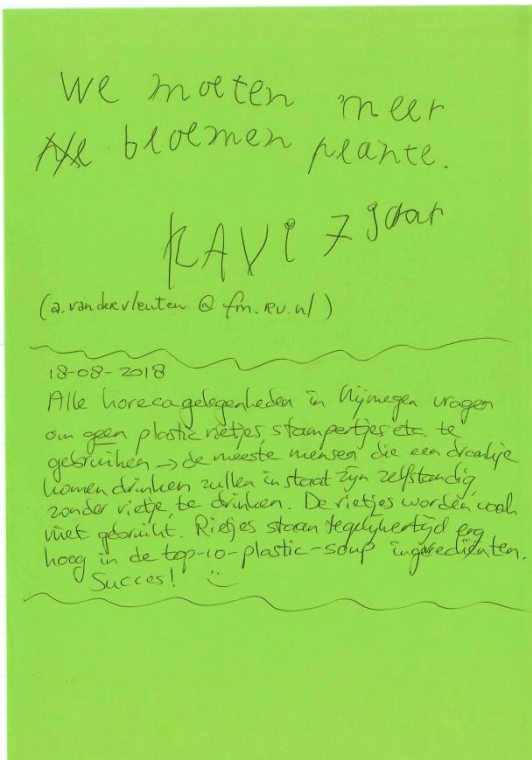 We moeten meer
bloemen plante.
RAVi 7 jaar
(a.vandervleuten @ fm.ru.nl)
18-08-2018
Alle horecagelegenheden in Nijmegen vragen
om geen plastic rietjes, stampertjes etc te
gebruiken → de meeste mensen die een drankje
komen drinken zullen in staat zijn zelfstandig
zonder rietje te drinken. De rietjes worden vaak
niet gebruikt. Rietjes staan tegelijkertijd erg
hoog in de top-10-plastic-soup ingrediënten.
Succes!